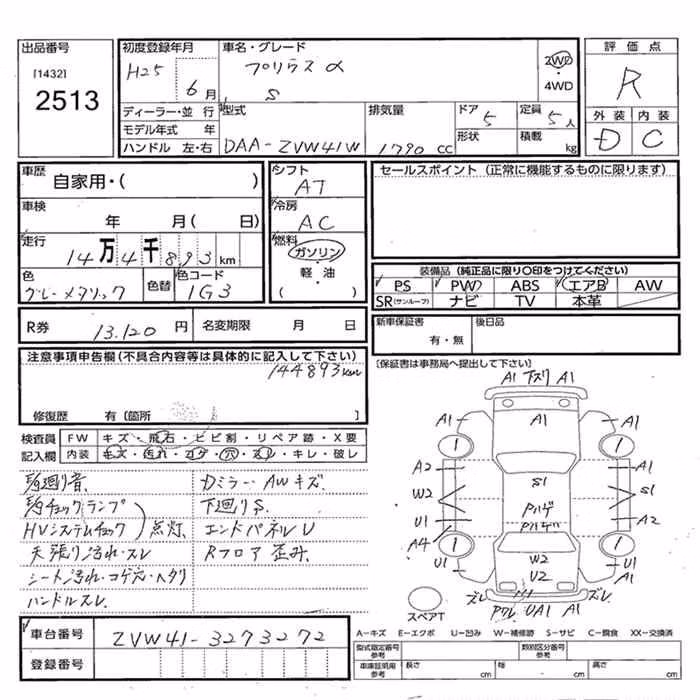 出品番号
[1432]
2513
初度登録年月
H25 6月
車名・グレード
プリウス α
S
2WD
・
4WD
評価点
R
外装 内装
D C
ディーラー・並行
モデル年式 年
ハンドル 左・右
型式
DAA-ZVW41W
排気量
1790 CC
ドア
5
形状
定員
5人
積載
kg
車歴
自家用・( )
車検
年 月( 日)
走行
14万4千893km
色
グレーメタリック
色替
色コード
1G3
シフト
AT
冷房
AC
燃料
ガソリン
・
軽・油
( )
セールスポイント (正常に機能するものに限ります)
装備品 (純正品に限り○印をつけてください)
PS PW ABS エアB AW
SR(サンルーフ) ナビ TV 本革
R券 13.120 円 名変期限 月 日
新車保証書
有・無
後日品
[保証書は事務局へ提出して下さい]
注意事項申告欄(不具合内容等は具体的に記入して下さい)
144893km
修復歴 有 [箇所 ]
検査員
記入欄
FW キズ・飛石・ヒビ割・リペア跡・X要
内装 キズ・汚れ・コゲ・穴・スレ・キレ・破レ
廻り音
チェックランプ
HVシステムチェック
点灯
天張り汚れ・スレ
シート汚れ・コゲ穴・ヘタリ
ハンドルスレ
Dミラー・AWキズ
下廻りS
エンドパネルU
Rフロア歪み
A1 下ズリ A1
A1 A1 A1
A2
S1
W2
S1
U1
A2
A4
Pハゲ
Pハゲ
U1
W2
U2
U1
A1
ズレ
ズレ
Pワレ UA1 A1
スペアT
車台番号 ZVW41-3273272
登録番号
A-キズ E-エクボ U-凹み W-補修跡 S-サビ C-腐食 XX-交換済
型式指定番号
参考
類別区分番号
参考
車庫証明用
参考
長さ cm
幅 cm
高さ cm